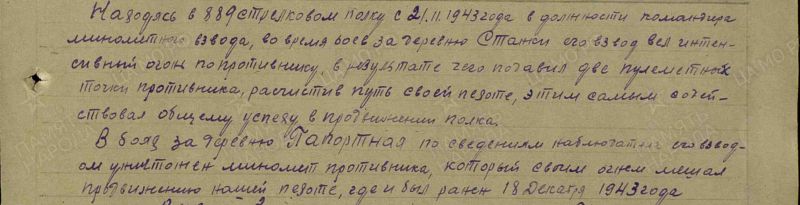 Находясь в 889 стрелковом полку с 21.11.1943 года в должности командира
минометного взвода, во время боев за деревню его взвод вел интен-
сивный огонь по противнику, в результате чего подавил две пулеметных
точки противника, расчистив путь своей пехоте, этим самым содей-
ствовал общему успеху в продвижении полка.
В боях за деревню Папортная по сведениям наблюдателя его взвод-
ом уничтожен миномет противника, который своим огнем мешал
продвижению нашей пехоте, где и был ранен 18 Декабря 1943 года